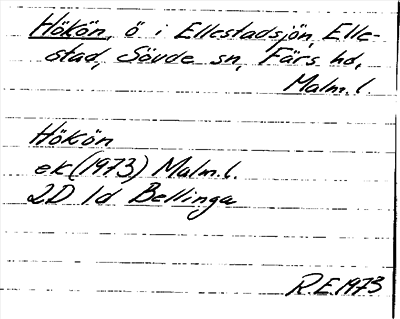 Hökön, ö i Ellestadsjön, Elle-
stad, Sövde sn, Färs hd,
Malm.l.
Hökön
ek (1973) Malm.l.
2D 1d Bellinga
R.E. 1973